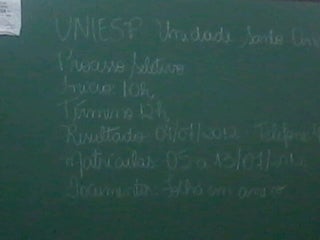 UNIESP Unidade Santo
Processo Seletivo
Início: 10h,
Término 12h,
Resultado: 04/01/2012 Telefone
Matrículas: 05 a 13/01/2012
Documentos: folha em anexo